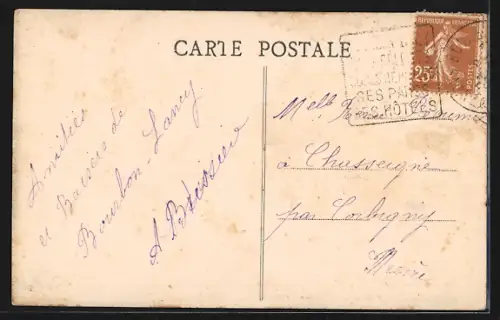 CARTE POSTALE
REPUBLIQUE FRANÇAISE
25c
POSTES
SES
SES HÔTELS
Amitiés
et Baisers de
Bourbon-Lancy
Melle
à Chasseigne
par Corbigny
Nièvre